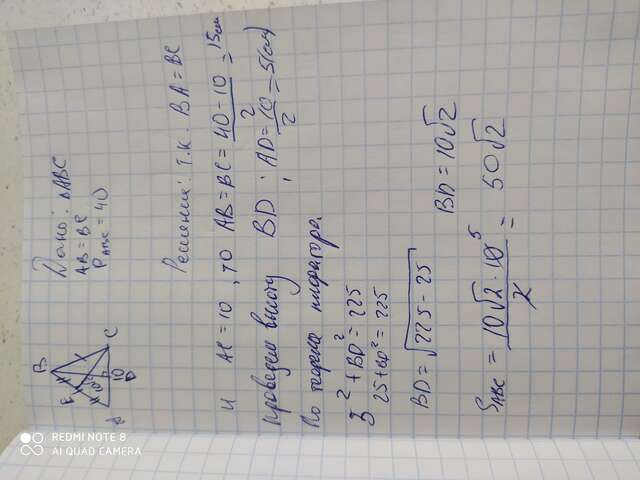 Дано: △ABC
AB = BC
P ABC = 40
B
E
O
A
D
C
10
Решений: Т.К. BA = BC
и AC = 10, то AB = BC = 40 - 10 / 2 = 15см
проведем высоту BD; AD = 10 / 2 = 5(см)
По теореме пифагора.
5² + BD² = 225
25 + BD² = 225
BD = √225 - 25 BD = 10√2
S ABC = 10√2 · 10 5 / 2 = 50√2
REDMI NOTE 8
AI QUAD CAMERA